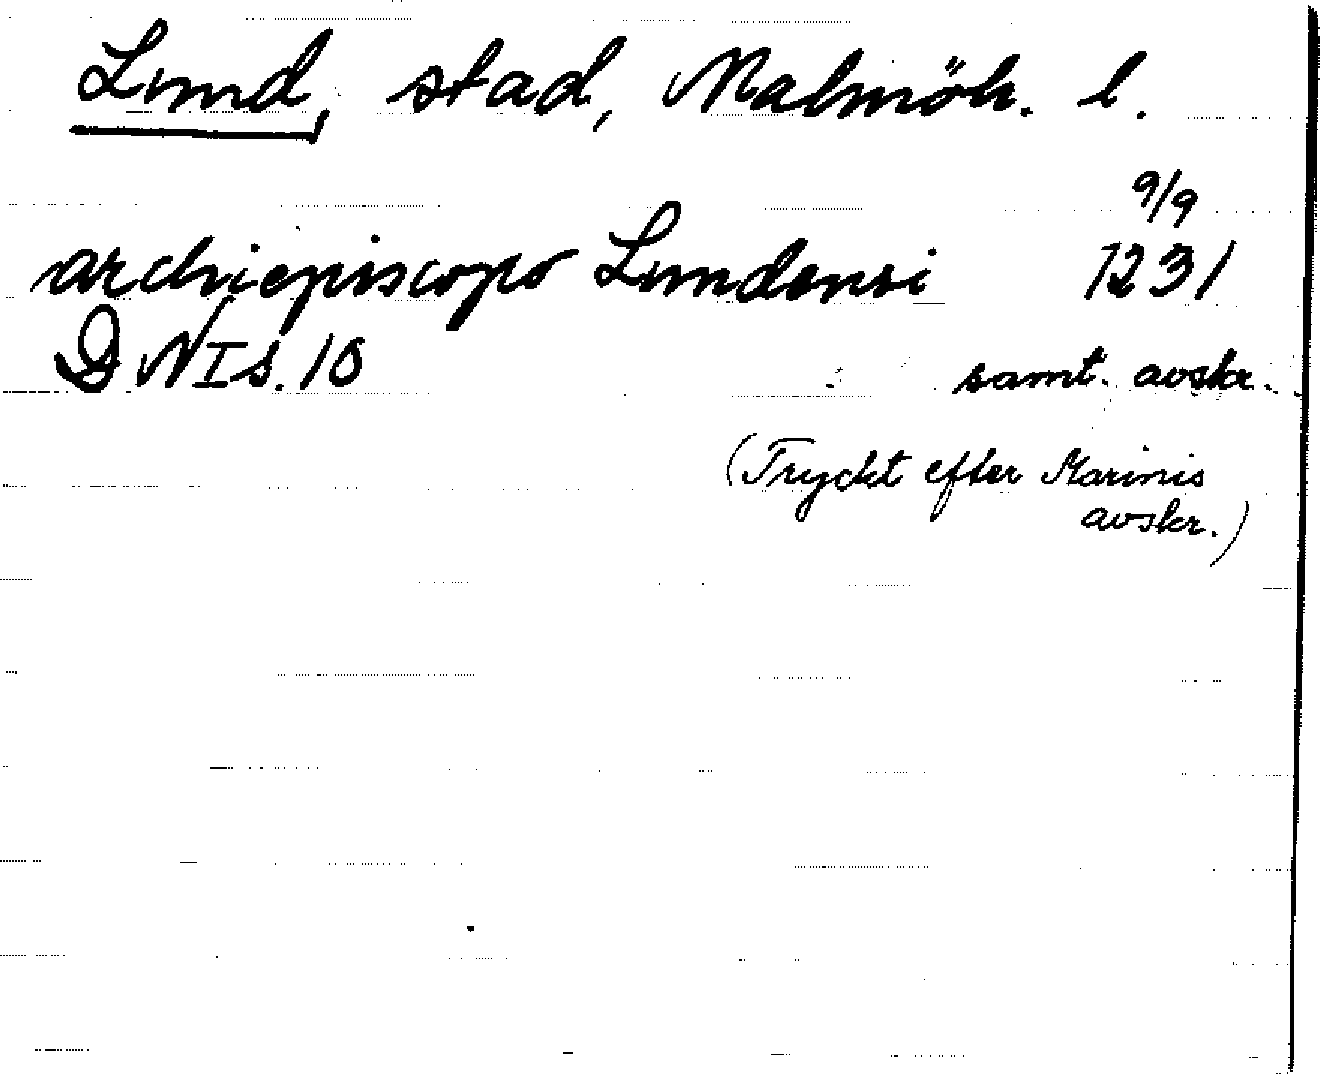 Lund, stad, Malmöh. l.
9/9
archiepiscopo Lundensi 1231
DN I s. 10 samt. avskr.
(Tryckt efter Marinis
avskr.)